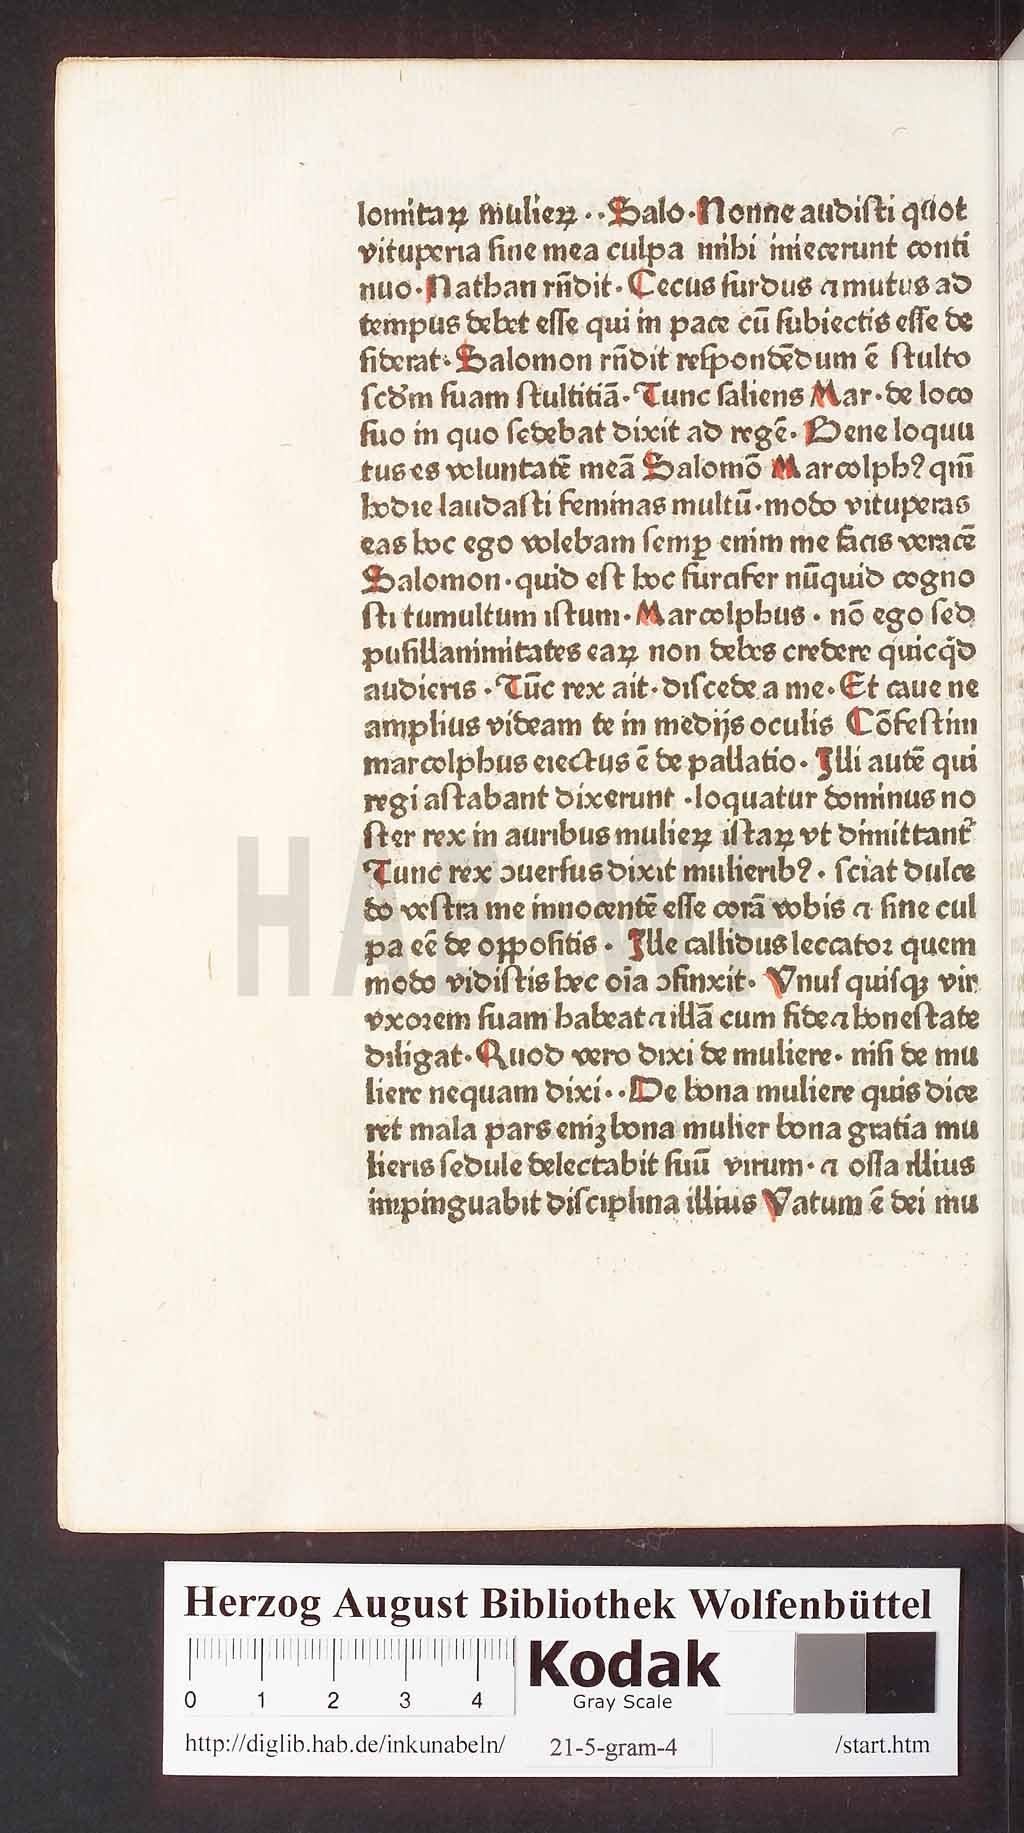 lomitaꝝ mulieꝝ ·· Salo· Nonne audiſti quot
vituperia ſine mea culpa mihi iniecerunt conti
nuo· Nathan rn̄dit· Cecus ſurdus ⁊ mutus ad
tempus debet eſſe qui in pace cū ſubiectis eſſe de
ſiderat· Salomon rn̄dit reſpondēdum ē ſtulto
ſcd̓m ſuam ſtultitiā· Tunc ſaliens Mar· de loco
ſuo in quo ſedebat dixit ad regē· Bene loquu
tus es voluntatē meā Salomō Marcolphꝰ qm̄
hodie laudaſti feminas multū· modo vituperas
eas hoc ego volebam ſemꝑ enim me facis veracē
Salomon· quid eſt hoc furcifer nūquid cogno
ſti tumultum iſtum· Marcolphus · nō ego ſed
puſillanimitates eaꝝ non debes credere quicq̇d
audieris · Tūc rex ait· diſcede a me· Et caue ne
amplius videam te in medijs oculis Cōfeſtim
marcolphus eiectus ē de pallatio· Illi autē qui
regi aſtabant dixerunt ·loquatur dominus no
ſter rex in auribus mulieꝝ iſtaꝝ vt dimittant᷑
Tunc rex ꝯuerſus dixit mulieribꝰ· ſciat dulce
do veſtra me innocentē eſſe corā vobis ⁊ ſine cul
pa eē de oppoſitis · Ille callidus leccatoꝛ quem
modo vidiſtis hec oīa ꝯfinxit· Vnuſ quiſqꝫ vir
vxoꝛem ſuam habeat ⁊ illā cum fide ⁊ honeſtate
diligat· Quod vero dixi de muliere· niſi de mu
liere nequam dixi·· De bona muliere quis dice
ret mala pars enīꝫ bona mulier bona gratia mu
lieris ſedule delectabit ſuū virum· ⁊ oſſa illius
impinguabit diſciplina illius Vatum ē dei mu
HAB WF
Herzog August Bibliothek Wolfenbüttel
0 1 2 3 4
Kodak
Gray Scale
http://diglib.hab.de/inkunabeln/ 21-5-gram-4 /start.htm